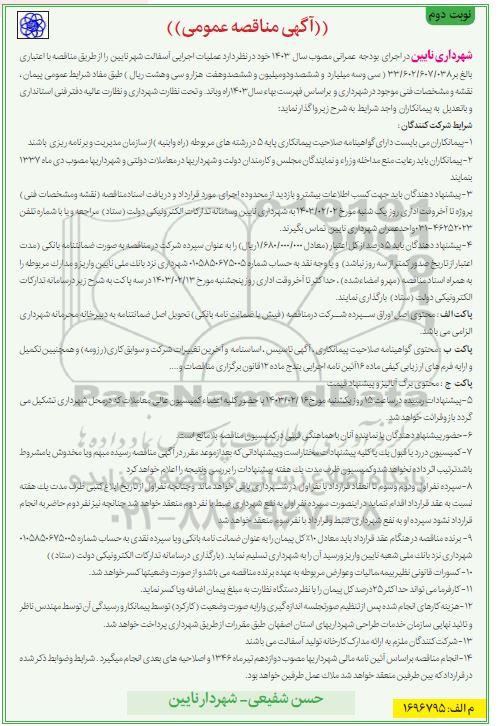 نوبت دوم
((آگهی مناقصه عمومی))
شهرداری نایین در اجرای بودجه عمرانی مصوب سال ۱۴۰۳ خود در نظر دارد عملیات اجرایی آسفالت شهر نایین را از طریق مناقصه با اعتباری
بالغ بر ۳۳/۶۰۲/۶۰۷/۰۳۸ ( سی وسه میلیارد و ششصدودومیلیون و ششصدوهفت هزار و سی وهشت ریال ) طبق مفاد شرایط عمومی پیمان ،
نقشه و مشخصات فنی موجود در شهرداری و براساس فهرست بهاء سال ۱۴۰۳ راه وباند و تحت نظارت شهرداری و نظارت عالیه دفتر فنی استانداری
و باتعدیل به پیمانکاران واجد شرایط به شرح زیر واگذار نماید:
شرایط شرکت کنندگان :
۱-پیمانکاران می بایست دارای گواهینامه صلاحیت پیمانکاری پایه ۵ در رشته های مربوطه ( راه وابنیه ) از سازمان مدیریت و برنامه ریزی باشند
۲-پیمانکاران باید رعایت منع مداخله وزراء و نمایندگان مجلس و کارمندان دولت و شهرداریها در معاملات دولتی و شهرداریها مصوب دی ماه ۱۳۳۷
بنمایند
۳-پیشنهاد دهندگان باید جهت کسب اطلاعات بیشتر و بازدید از محدوده اجرای مورد قرارداد و دریافت اسناد مناقصه (نقشه ومشخصات فنی )
پروژه تا آخر وقت اداری روز یک شنبه مورخ ۱۴۰۳/۰۲/۰۲ به شهرداری نایین وسامانه تدارکات الکترونیکی دولت ( ستاد ) مراجعه و یا با شماره تلفن
۰۳۱-۴۶۲۵۲۰۲۳ واحدعمران شهرداری نایین تماس بگیرند.
۴-پیشنهاد دهندگان باید ۵ درصد از کل اعتبار (معادل ۱/۶۸۰/۰۰۰/۰۰۰ریال) را به عنوان سپرده شرکت در مناقصه به صورت ضمانتنامه بانکی (مدت
اعتبار از تاریخ صدور کمتر از سه روز نباشد) و یا وجه نقد به حساب شماره ۰۱۰۵۸۵۰۶۷۵۰۰۵ شهرداری نزد بانک ملی نایین واریز و مدارک مربوطه را
به همراه اسناد مناقصه ( مهر و امضاءشده ) ، حداکثر تا آخر وقت اداری روز پنجشنبه مورخ ۱۴۰۳/۰۲/۱۳ در سه پاکت به شرح زیر درسامانه تدارکات
الکترونیکی دولت (ستاد) بارگذاری نمایند.
پاکت الف : محتوی اصل اوراق سپرده شرکت درمناقصه (فیش یا ضمانت نامه بانکی) تحویل اصل ضمانتنامه به دبیرخانه محرمانه شهرداری
الزامی می باشد.
پاکت ب : محتوی گواهینامه صلاحیت پیمانکاری ، آگهی تاسیس ، اساسنامه و آخرین تغییرات شرکت و سوابق کاری (رزومه) و همچنین تکمیل
و ارایه فرم های ارزیابی کیفی ماده ۱۶ آئین نامه اجرایی بندج ماده ۱۲ قانون برگزاری مناقصات و....
پاکت ج : محتوی برگ آنالیز و پیشنهاد قیمت
۵-پیشنهادات رسیده درساعت ۱۵ روز یکشنبه مورخ ۱۴۰۳/۰۲/۱۶ با حضور کلیه اعضاء کمیسیون عالی معاملات که در محل شهرداری تشکیل می
گردد باز وقرائت خواهد شد.
۶-حضور پیشنهاد دهندگان یا نماینده آنان با هماهنگی قبلی در کمیسیون مناقصه بلامانع است.
۷-کمیسیون در رد یا قبول یک یا کلیه پیشنهادات مختار است و پیشنهاداتی که بعد از موعد مقرر در آگهی مناقصه رسیده مبهم ویا مخدوش یا مشروط
باشدترتیب اثر داده نخواهد شدوکمیسیون ظرف مدت یک هفته پیشنهادات را بررسی ونتیجه را اعلام خواهد کرد
۸-سپرده نفر اول ودوم وسوم تا انعقاد قرارداد با نفر اول در شهرداری باقی خواهد ماند و چنانچه نفر اول از تاریخ ابلاغ کتبی ظرف مدت یک هفته
نسبت به عقد قرارداد اقدام ننماید در اینصورت سپرده نفر اول به نفع شهرداری ضبط با نفر دوم منعقد خواهد شد چنانچه نیز نفر دوم حاضر به انجام
قرارداد نشود سپرده او به نفع شهرداری ضبط وقرارداد با نفر سوم منعقد خواهد شد
۹- برنده مناقصه در هنگام عقد قرارداد باید معادل ۱۰٪ کل پیمان را به عنوان ضمانت نامه بانکی و یا سپرده نقدی به حساب شماره ۰۱۰۵۸۵۰۶۷۵۰۰۵
شهرداری نزد بانک ملی شعبه نایین واریز ورسید آن را به شهرداری تسلیم نماید. (بارگذاری درسامانه تدارکات الکترونیکی دولت (ستاد))
۱۰-کسورات قانونی نظیر بیمه،مالیات وعوارض مربوطه به عهده برنده مناقصه می باشدو از صورت وضعیتها کسر خواهد شد.
۱۱-کارفرما می تواند حداکثر ۲۵درصد کل پیمان را با نظر دستگاه نظارت به مبلغ پیمان اضافه ویا کسر نماید.
۱۲-هزینه کارهای انجام شده پس از تنظیم صورتجلسه اندازه گیری وارایه صورت وضعیت ( کارکرد ) توسط پیمانکار و رسیدگی آن توسط مهندس ناظر
و تائید نهایی سازمان خدمات طراحی شهرداریهای استان اصفهان طبق مقررات از طریق شهرداری پرداخت خواهد شد.
۱۳-شرکت کنندگان ملزم به ارائه مدارک کارخانه تولید آسفالت می باشند
۱۴-انجام مناقصه براساس آئین نامه مالی شهرداریها مصوب دوازدهم تیرماه ۱۳۴۶ و اصلاحیه های بعدی انجام میگیرد . شرایط وضوابط ذکر شده
در قرارداد که بین طرفین منعقد خواهد شد ملاک عمل طرفین خواهد بود.
حسن شفیعی- شهردار نایین
م الف: ۱۶۹۶۷۹۵